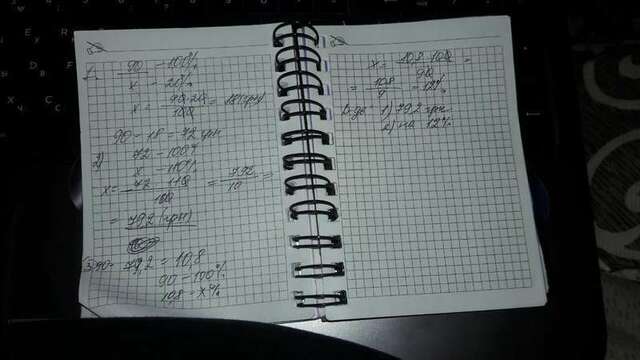 1. 90 - 100%
x - 20%
x = 90·20/100 = 18 (грн)
90 - 18 = 72 грн
2) 72 - 100%
x - 110%
x = 72·110/100 = 792/10 =
= 79,2 (грн)
3) 90 - 79,2 = 10,8
90 - 100%
10,8 - x%
x = 10,8·100/90 =
= 108/9 - 12%
1) 79,2 грн
2) на 12%